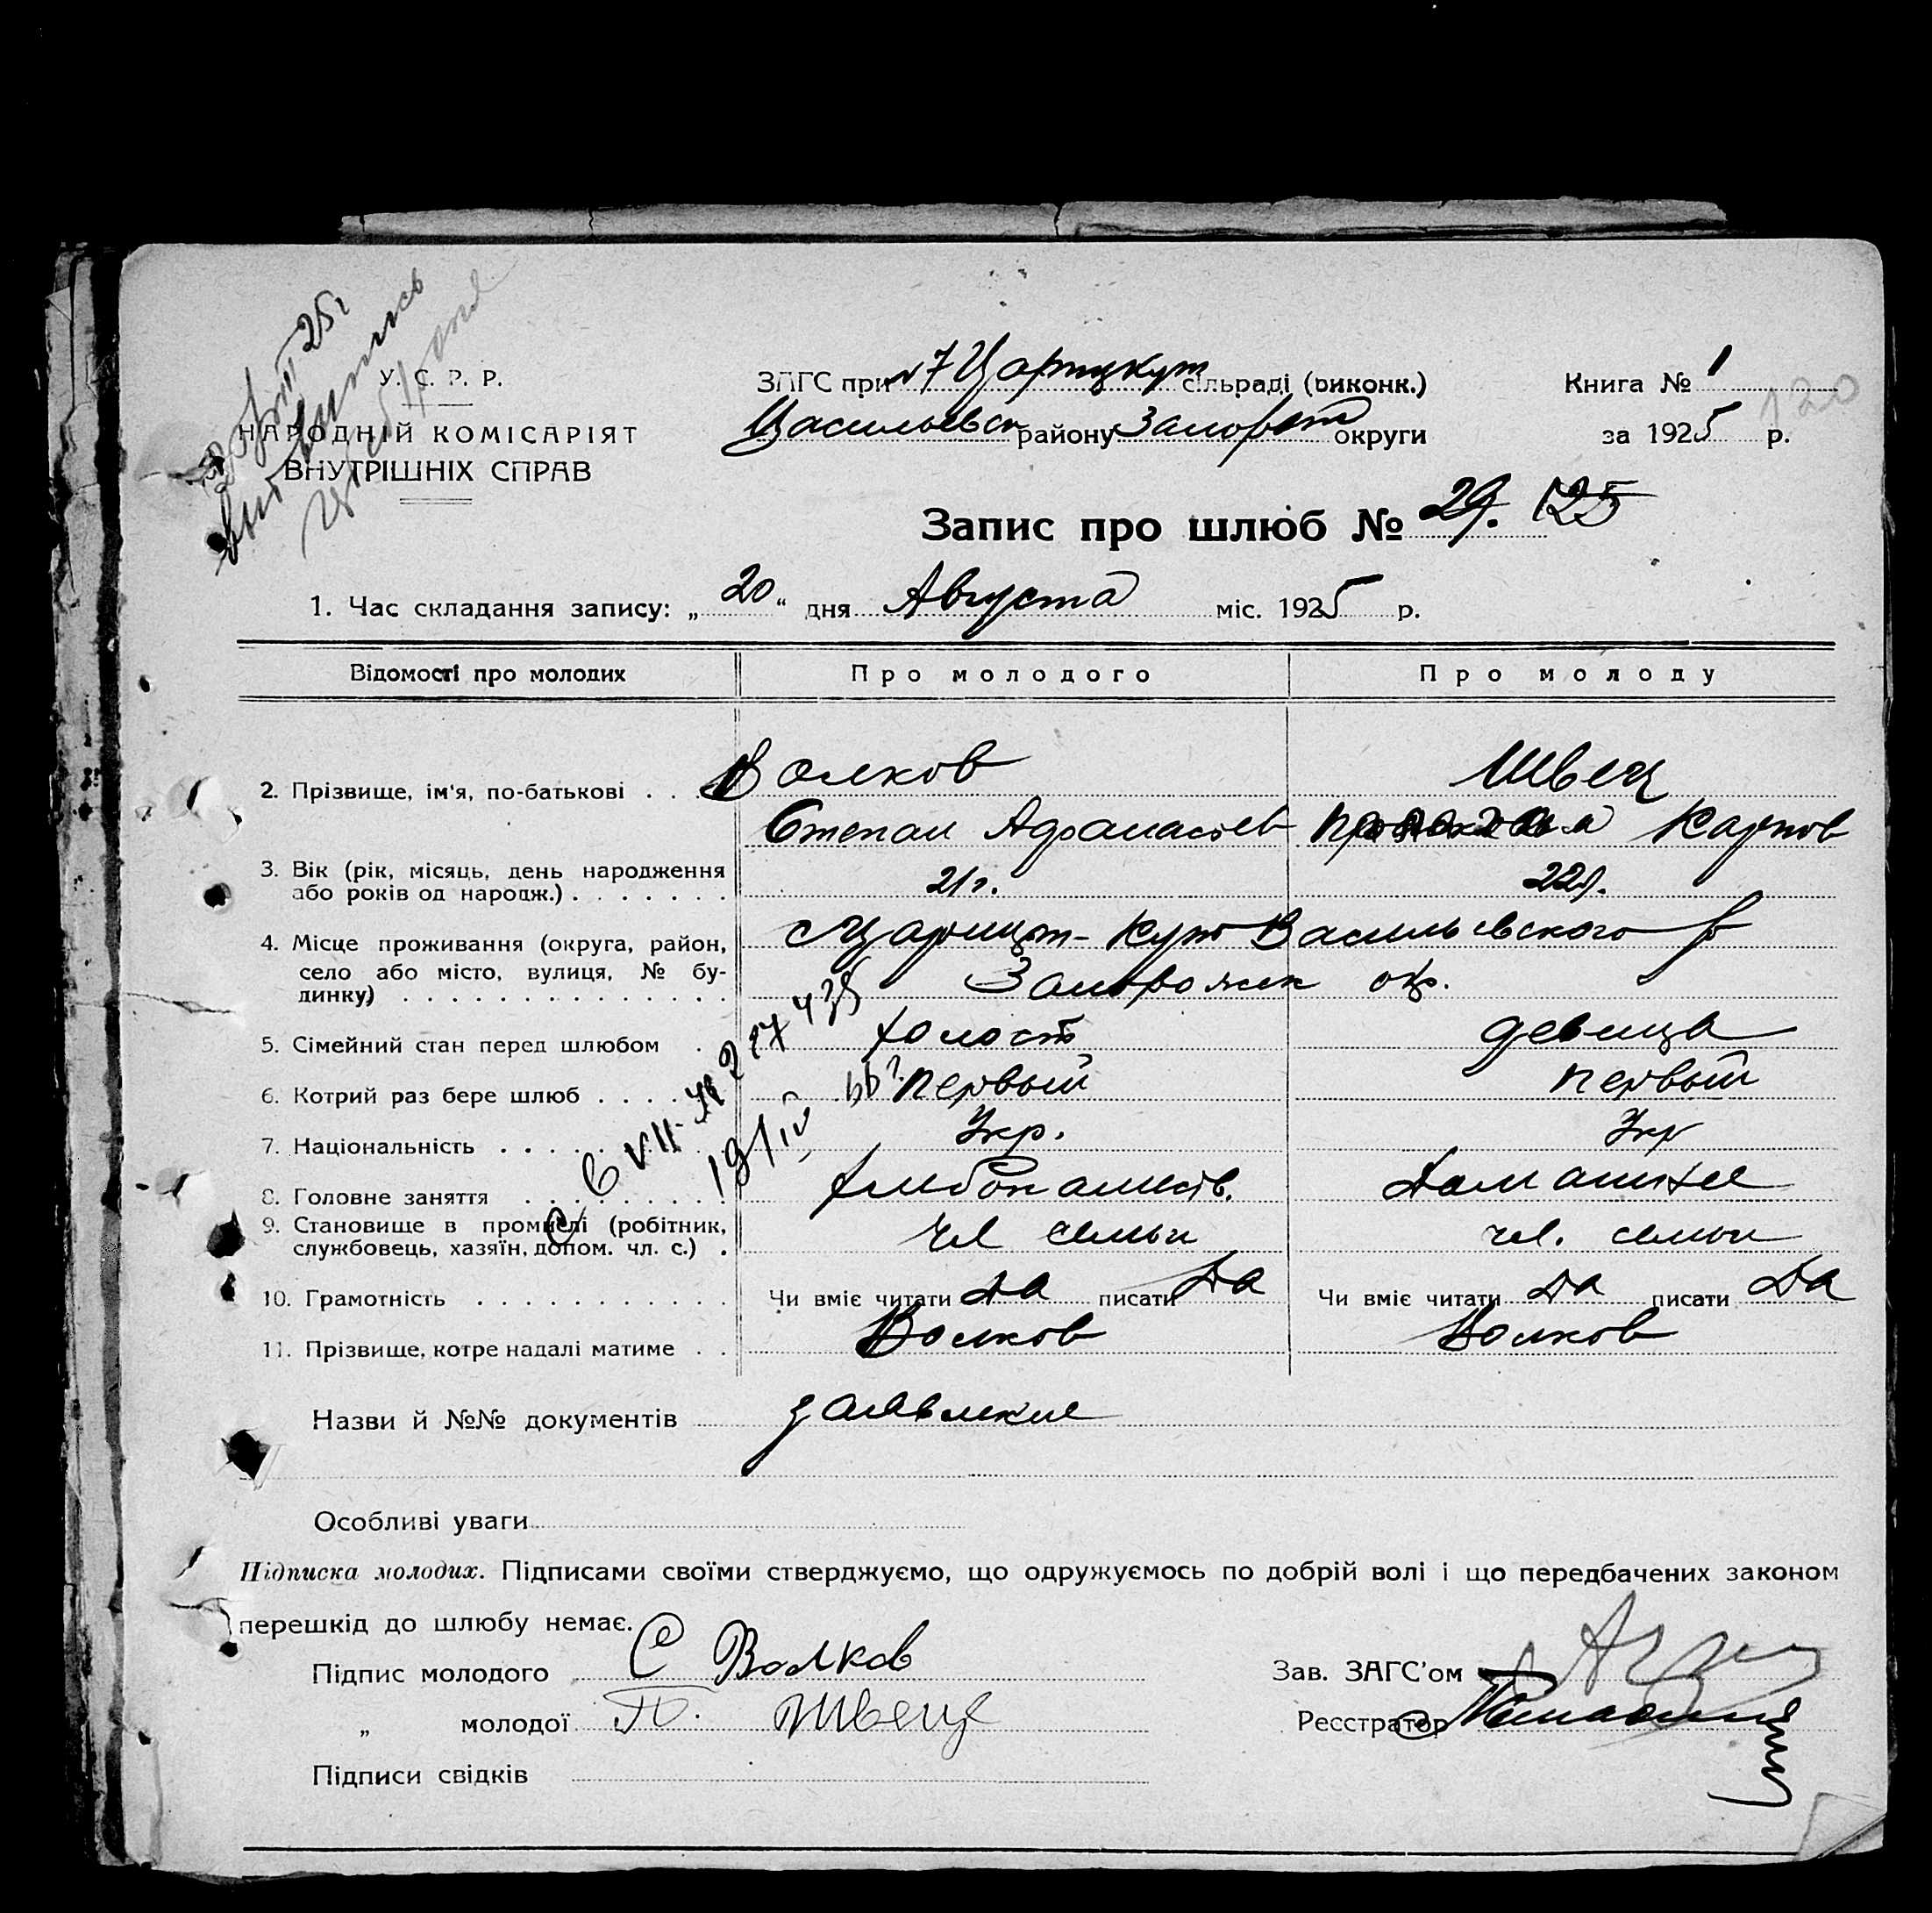 У. С. Р. Р.
НАРОДНІЙ КОМІСАРІЯТ
ВНУТРІШНІХ СПРАВ
ЗАГС при сільраді (виконк.)
району округи
Книга № 1
120
за 1925 р.
Запис про шлюб № 29. 125
1. Час складання запису: „20“ дня Августа міс. 1925 р.
Відомості про молодих Про молодого Про молоду
2. Прізвище, ім'я, по-батькові . . . Волков Швец
Степан Афанасьев Карпов
3. Вік (рік, місяць, день народження
або років од народж.) . . . . . . . 21г. 22г.
4. Місце проживання (округа, район,
село або місто, вулиця, № бу-
динку) . . . . . . . . . . . . . . .
с Царицын-Кут Васильевского р
Запорожск окр.
5. Сімейний стан перед шлюбом . холост девица
6. Котрий раз бере шлюб . . . . первый первый
7. Національність . . . . . Укр. Укр
8. Головне заняття . . . . . . . . . хлебопашеств. домашнее
9. Становище в промислі (робітник,
службовець, хазяїн, допом. чл. с.) . чл семьи чл. семьи
10. Грамотність . . . . . . . . . . . Чи вміє читати да писати да Чи вміє читати да писати да
11. Прізвище, котре надалі матиме . . Волков Волков
Назви й №№ документів заявление
Особливі уваги
Підписка молодих. Підписами своїми стверджуємо, що одружуємось по добрій волі і що передбачених законом
перешкід до шлюбу немає.
Підпис молодого С Волков
Зав. ЗАГС'ом
„ молодої П. Швец
Реєстратор
Підписи свідків